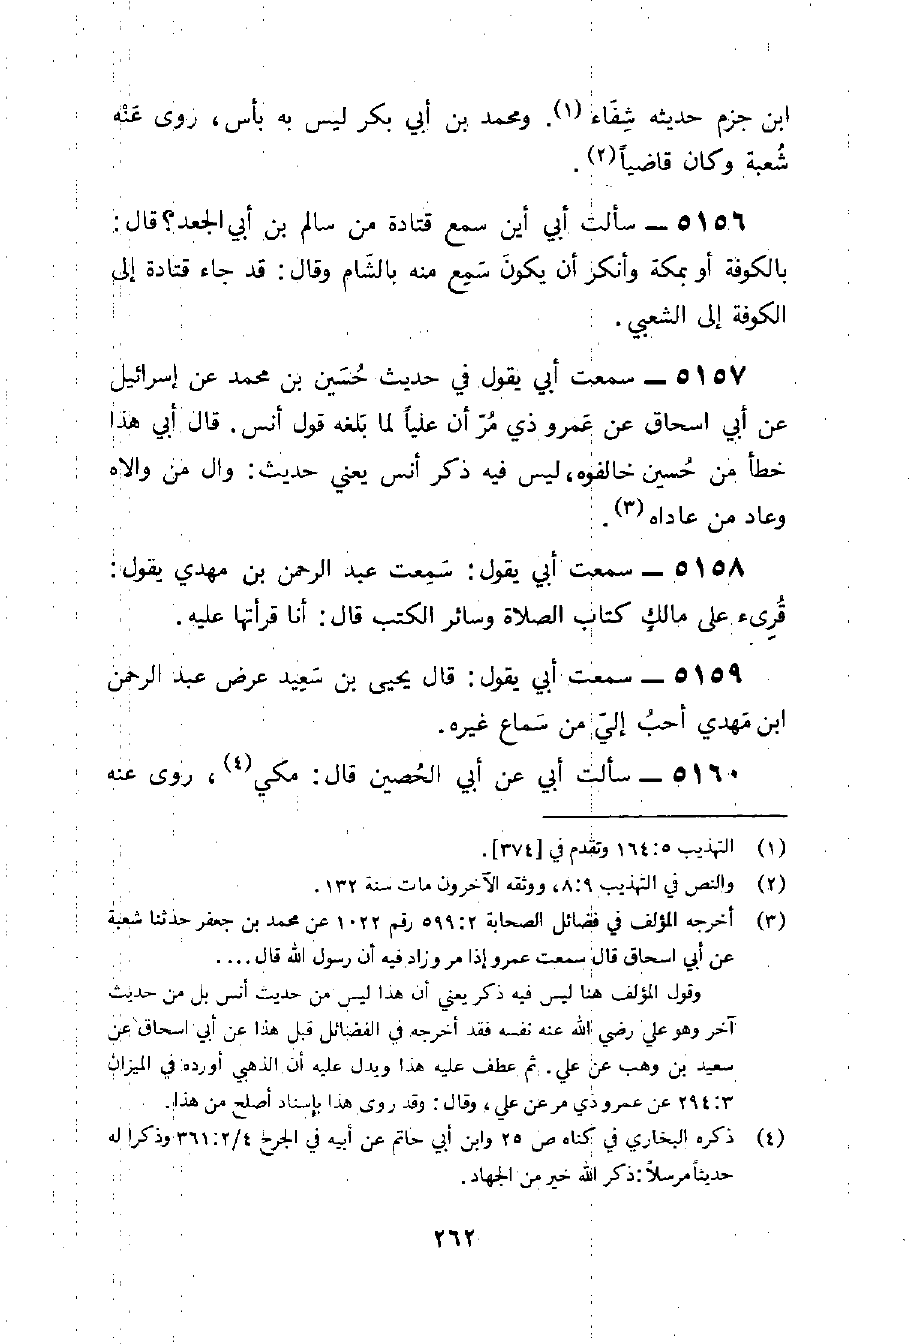 ابن جزم حديثه شِفَاء (١). ومحمد بن أبي بكر ليس به بأس، روى عَنْه
شُعبة وكان قاضياً(٢).
٥١٥٦ ــ سألت أبي أين سمع قتادة من سالم بن أبي الجعد؟ قال:
بالكوفة أو بمكة وأنكر أن يكونَ سَمِع منه بالشَام وقال: قد جاء قتادة إلى
الكوفة إلى الشعبي.
٥١٥٧ ــ سمعت أبي يقول في حديث حُسَين بن محمد عن إسرائيل
عن أبي اسحاق عن عَمرو ذي مُرّ أن علياً لما بَلغه قول أنس. قال أبي هذا
خطأ من حُسين خالفوه، ليس فيه ذكر أنس يعني حديث: وال من والاه
وعاد من عاداه(٣).
٥١٥٨ ــ سمعت أبي يقول: سَمِعت عبد الرحمن بن مهدي يقول:
قُرِىء على مالكٍ كتاب الصلاة وسائر الكتب قال: أنا قرأتها عليه.
٥١٥٩ ــ سمعت أبي يقول: قال يحيى بن سَعِيد عرض عبد الرحمن
ابن مَهدي أحبُ إليّ من سَماع غيره.
٥١٦٠ ــ سألت أبي عن أبي الحُصين قال: مكي(٤)، روى عنه
(١) التهذيب ٥: ١٦٤ وتقدم في [٣٧٤].
(٢) والنص في التهذيب ٩: ٨، ووثقه الآخرون مات سنة ١٣٢.
(٣) أخرجه المؤلف في فضائل الصحابة ٢: ٥٩٩ رقم ١٠٢٢ عن محمد بن جعفر حدثنا شعبة
عن أبي اسحاق قال سمعت عمرو إذا مر وزاد فيه أن رسول الله قال....
وقول المؤلف هنا ليس فيه ذكر يعني أن هذا ليس من حديث أنس بل من حديث
آخر وهو علي رضي الله عنه نفسه فقد أخرجه في الفضائل قبل هذا عن أبي اسحاق عن
سعيد بن وهب عن علي. ثم عطف عليه هذا ويدل عليه أن الذهبي أورده في الميزان
٣: ٢٩٤ عن عمرو ذي مر عن علي، وقال: وقد روى هذا بإسناد أصلح من هذا.
(٤) ذكره البخاري في كناه ص ٢٥ وابن أبي حاتم عن أبيه في الجرح ٢/٤: ٣٦١ وذكرا له
حديثاً مرسلاً: ذكر الله خير من الجهاد.
٢٦٢